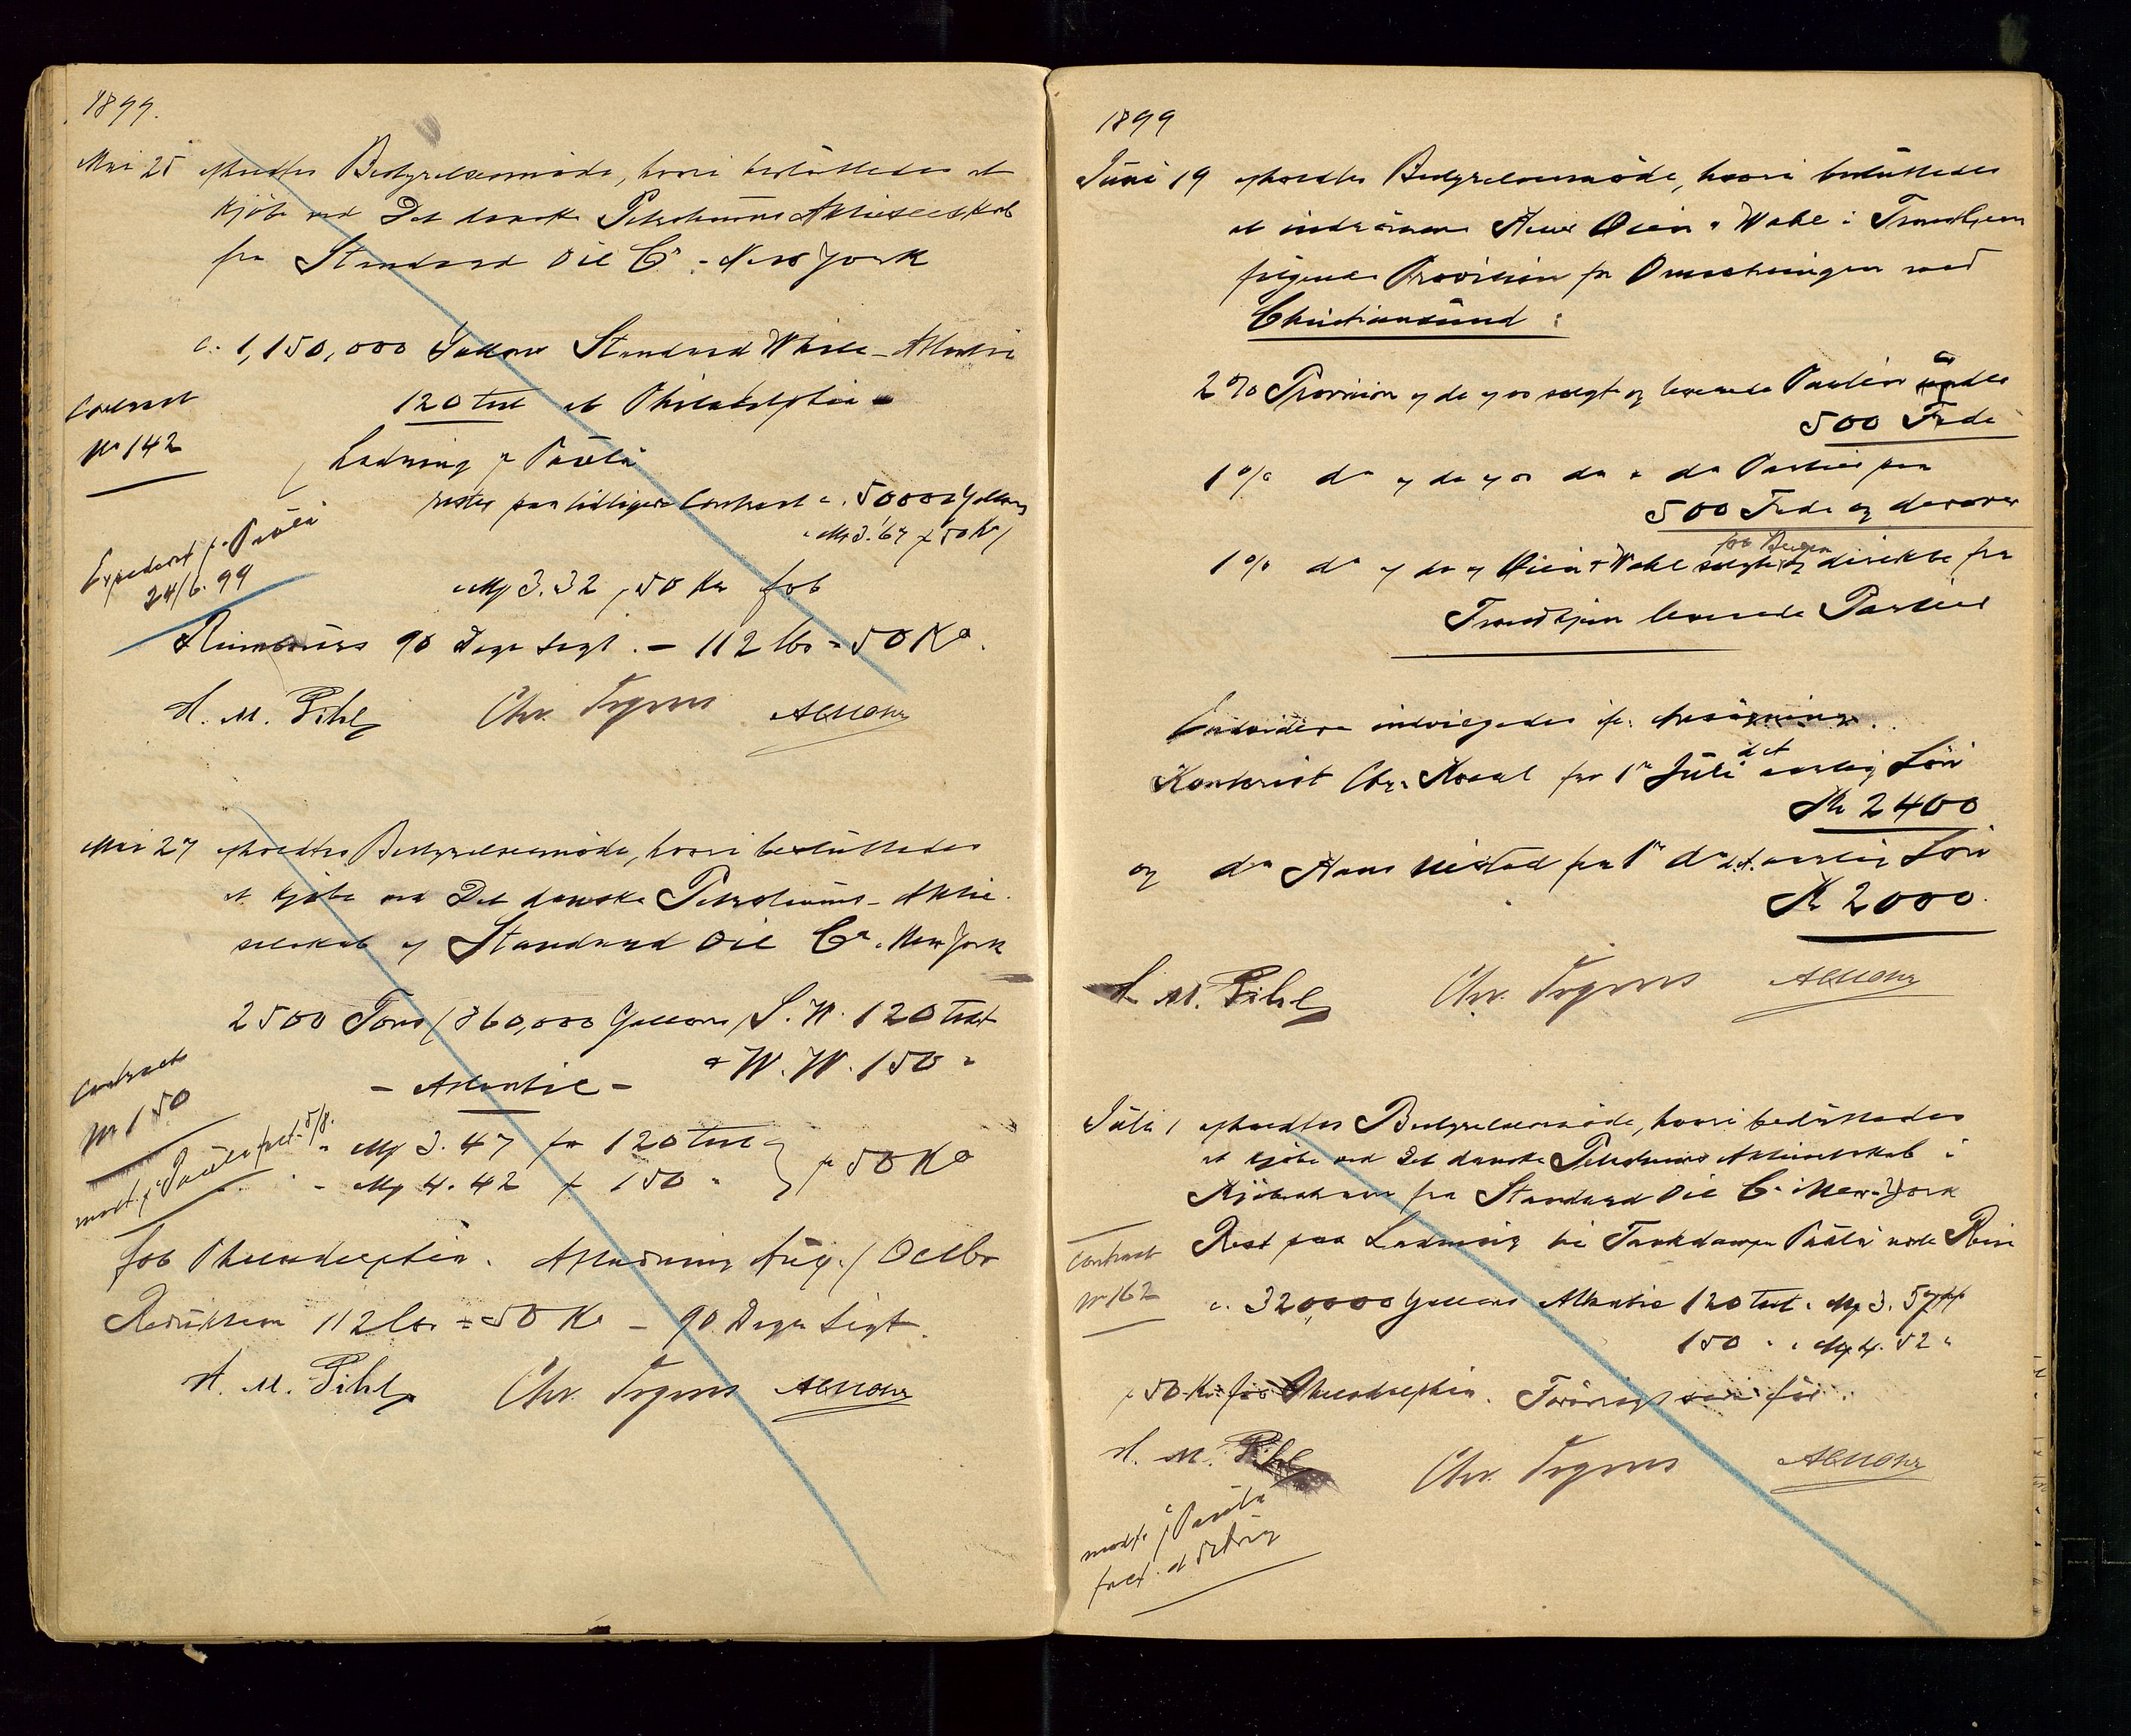 1899.
Mai 25 afholdtes Bestyrelsesmöde, hvori beslüttedes at
kjöbe ved Det danske Petroleums Aktieselskab
fra Standard Oil Co. New York
c. 1,150,000 Gallons Standard White Atlantic
120 test ab Philadelphia
Contract
No 142
Ladning pr Paüla
rester paa tidligere Contract c. 50000 Gallons
Mp 3.67 pr 50 Ko
Expederet pr Paüla
24/6. 99
Mp 3.32 pr 50 Ko fob
Rimbours 90 Dage Sigt. - 112 lbs = 50 Ko.
H. M. Pihl Chr. Irgens
Mai 27 afholdtes Bestyrelsesmöde, hvori beslüttedes
at kjöbe ved Det danske Petroleums-Aktie
selskab af Standard Oil Co. New York
2500 Tons / 860,000 Gallons / S. W. 120 test
& W. W. 150 "
- Atlantic -
Contract
No 150
modt. pr Paüla 5/8.
Mp 3.47 for 120 test
Mp 4.42 " 150 " } pr 50 Ko
fob Philadelphia. Afladning Aüg. / Octbr
Redüktion 112 lbs = 50 Ko - 90 Dage Sigt.
H. M. Pihl Chr. Irgens
1899
Jüni 19 afholdtes Bestyrelsesmöde, hvori beslüttedes
at indrömme Herrer Öien & Wahl i Trondhjem
fölgende Provision for Omsætningen med
Christianssünd:
2 % Provision af de af os solgte og leverede Partier ünder
500 Fade
1 % do af de af os do & do Partier paa
500 Fade og derover
1 % do af de af Öien & Wahl solgte fob Bergen og direkte fra
Trondhjem leverede Partier
Endvidere indvilgedes
Kontorist Chr. fra 1ste Jüli d. A. aarlig Lön
Kr 2400
og do Hans fra 1ste do d. A. aarlig Lön
Kr 2000.
H. M. Pihl Chr. Irgens
Jüli 1 afholdtes Bestyrelsesmöde, hvori beslüttedes
at kjöbe ved Det danske Petroleums Aktieselskab i
Kjöbenhavn fra Standard Oil Co. i New-York
Rest paa Ladning til Tankdamper Paüla
Contract
No 162
c. 320,000 Gallons Atlantic 120 test Mp 3.57
150 " " Mp 4.52 "
pr 50 Ko fob Philadelphia. Forövrigt som för.
H. M. Pihl Chr. Irgens
modt. pr Paüla